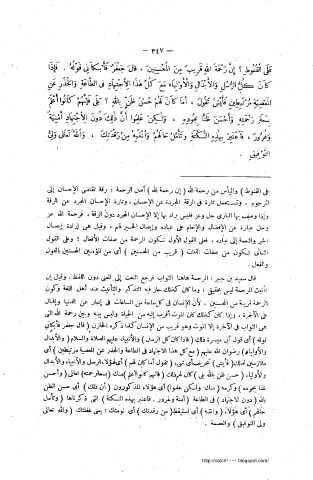 — ٣٤٧ —
عَلَى الْقُنُوطِ ؟ إِنَّ رَحْمَةَ اللهِ قَرِيبٌ مِنَ الْمُحْسِنِينَ . قَالَ جَعْفَرٌ فَأَبْكَانِى قَوْلُهُ . فَإِذَا
كَانَ كُلُّ الرُّسُلِ وَالْأَبْدَالِ وَالْأَوْلِيَاءِ مَعَ كُلِّ هٰذَا الِاجْتِهَادِ فِى الطَّاعَةِ وَالْحَذَرِ عَنِ
الْمَعْصِيَةِ مُرْتَبِطِينَ فَأَيْشٍ تَقُولُ ، أَمَا كَانَ لَهُمْ حُسْنُ ظَنٍّ بِاللهِ ؟ بَلَى فَإِنَّهُمْ كَانُوا أَعْلَمَ
بِسَعَةِ رَحْمَتِهِ وَأَحْسَنَ ظَنًّا بِجُودِهِ ، وَلٰكِنْ عَلِمُوا أَنَّ ذٰلِكَ دُونَ الِاجْتِهَادِ أُمْنِيَةٌ
وَغُرُورٌ ، فَاعْتَبِرْ بِهٰذِهِ النُّكْتَةِ وَتَأَمَّلْ حَالَهُمْ وَانْتَبِهْ مِنْ رَقْدَتِكَ ، وَاللهُ تَعَالَى وَلِىُّ
التَّوْفِيقِ
على القنوط ) واليأس من رحمة الله ( إن رحمة الله ) أصل الرحمة : رقة تقتضى الإحسان إلى
المرحوم . وتستعمل تارة فى الرقة المجردة عن الإحسان ، وتارة فى الإحسان المجرد عن الرقة
وإذا وصف بها البارى جل وعز فليس يراد بها إلا الإحسان المجرد دون الرقة . فرحمة الله عز
وجل عبارة عن الإفضال والإنعام على عباده وإيصال الخير إليهم ، وقيل هى إرادة إيصال
الخير والنعمة إلى عباده . فعلى القول الأول تكون الرحمة من صفات الأفعال ؛ وعلى القول
الثانى تكون من صفات الذات ( قريب من المحسنين ) أى من المؤمنين المحسنين بالقول
والفعل .
قال سعيد بن جبير : الرحمة هاهنا الثواب فرجع النعت إلى المعنى دون اللفظ . وقيل إن
تأنيث الرحمة ليس بحقيقى ، وما كان كذلك جاز فيه التذكير والتأنيث عند أهل اللغة وكون
الرحمة قريبة من المحسنين . لأن الإنسان فى كل ساعة من الساعات فى إدبار عن الدنيا وإقبال
على الآخرة . وإذا كان كذلك كان الموت أقرب إليه من الحياة وليس بينه وبين رحمة الله
التى هى الثواب فى الآخرة إلا الموت وهو قريب من الإنسان كما ذكره الخازن ( قال جعفر فأبكانى
قوله ) أى قول أبى ميسرة ذلك ( فإذا كان كل الرسل ) والأنبياء عليهم الصلاة والسلام ( والأبدال
والأولياء ) رضوان الله عليهم ( مع كل هذا الاجتهاد فى الطاعة والحذر عن المعصية مرتبطين ) أى
ملازمين لذلك ( فأيش ) تخفيف أى شىء ( تقول أما كان لهم ) أى لهؤلاء الرسل والأنبياء والأبدال
( حسن ظن بالله بلى ) كان لهم ذلك ( فإنهم كانوا أعلم ) منك ( بسعة رحمته ) تعالى ( وأحسن
ظنا بجوده ) وكرمه ( منك ولكن علموا ) أى هؤلاء المذكورون ( أن ذلك ) أى حسن الظن
بالله ( دون الاجتهاد ) فى الطاعة ( أمنية وغرور . فاعتبر بهذه النكتة ) التى ذكرناها ( وتأمل
حالهم ) أى هؤلاء ، ( وانتبه ) أى استيقظ ( من رقدتك ) أى نومتك : يعنى غفلتك ( والله تعالى
ولى التوفيق ) والعصمة .